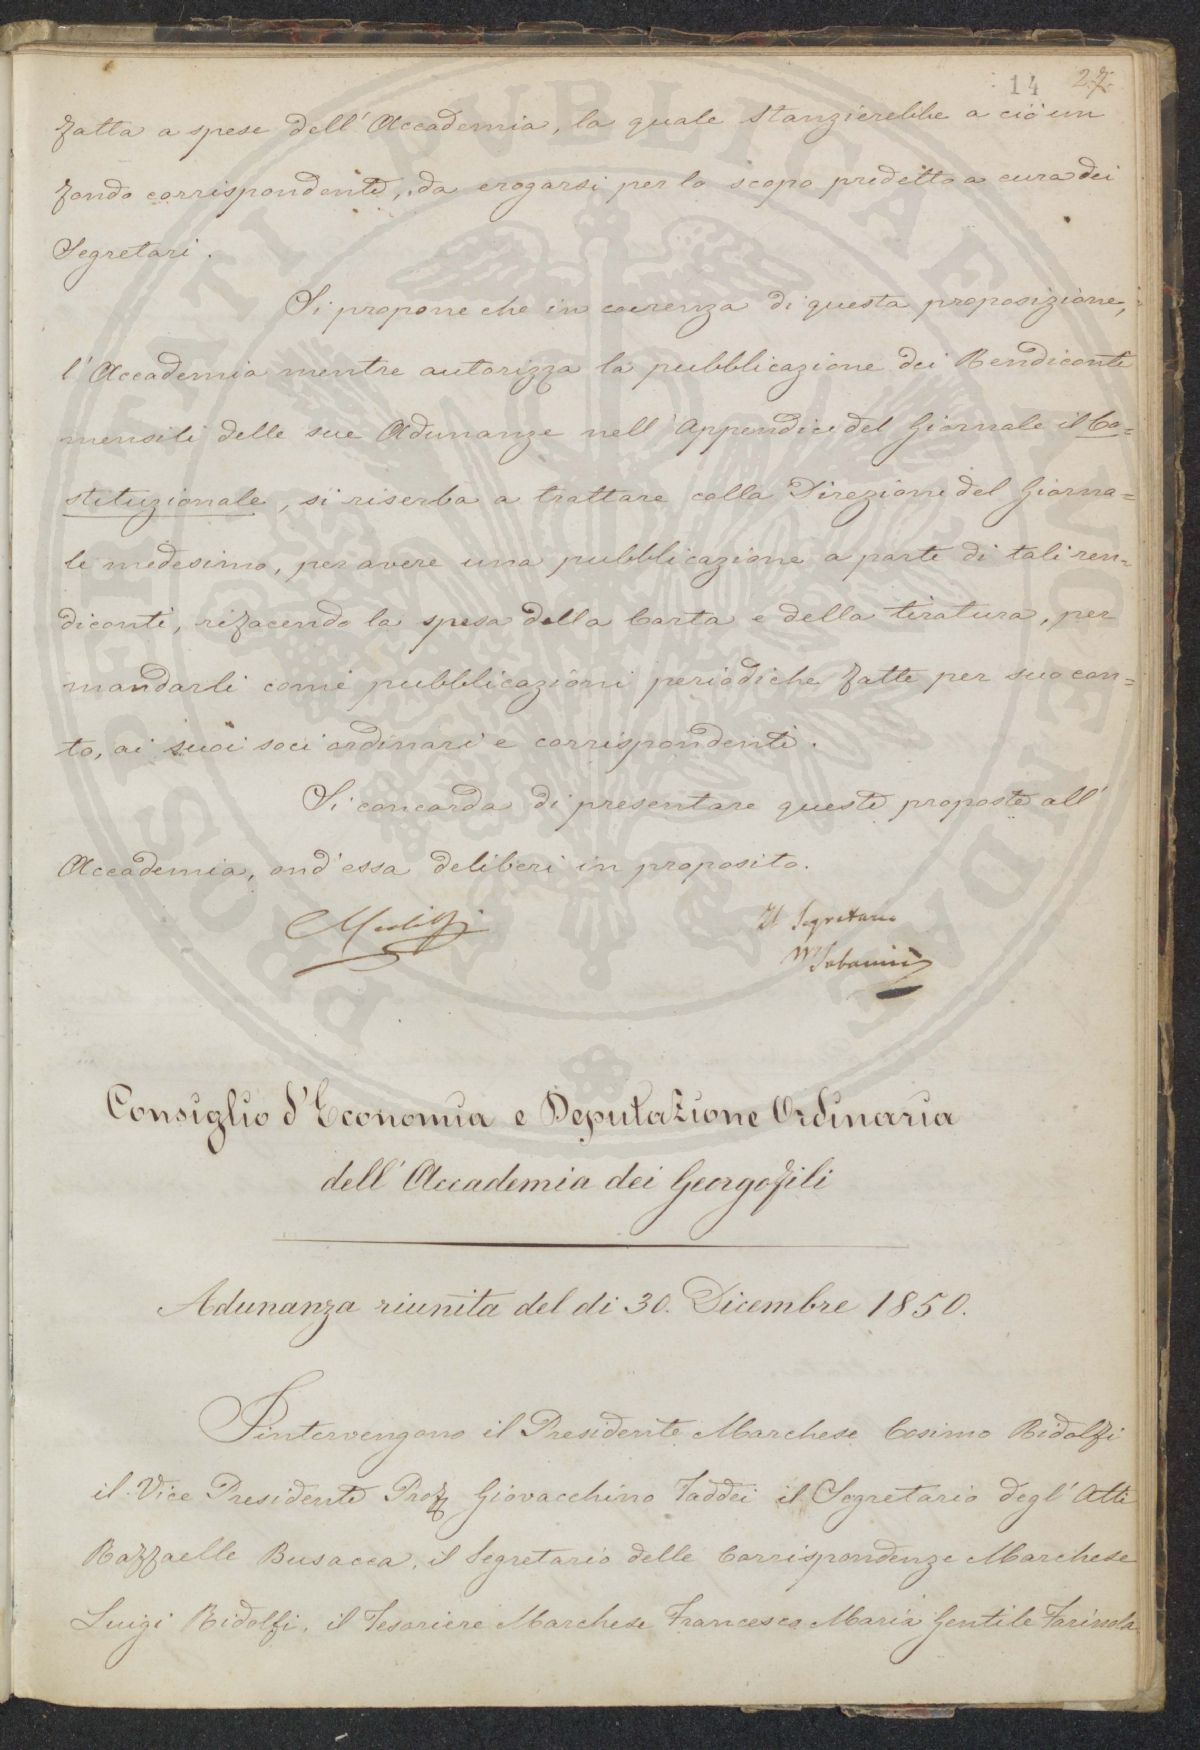 14 27.
fatta a spese dell'Accademia, la quale stanzierebbe a ciò un
fondo corrispondente, da erogarsi per lo scopo predetto a cura dei
Segretari.
Si propone che in coerenza di questa proposizione,
l'Accademia mentre autorizza la pubblicazione dei Rendiconti
mensili delle sue Adunanze nell'Appendice del Giornale il Co=
stituzionale, si riserba a trattare colla Direzione del Giorna=
le medesimo, per avere una pubblicazione a parte di tali ren=
diconti, rifacendo la spesa della Carta e della tiratura, per
mandarli come pubblicazioni periodiche fatte per suo con=
to, ai suoi soci ordinari e corrispondenti.
Si concorda di presentare queste proposte all'
Accademia, ond'essa deliberi in proposito.
Il Segretario
Consiglio d'Economia e Deputazione Ordinaria
dell'Accademia dei Georgofili
Adunanza riunita del di 30. Dicembre 1850.
S'intervengono il Presidente Marchese Cosimo Ridolfi
il Vice Presidente Prof. Giovacchino Taddei il Segretario degl'Atti
Raffaelle Busacca, il Segretario delle Corrispondenze Marchese
Luigi Ridolfi, il Tesoriere Marchese Francesco Maria Gentile Farinola
PROSPERITATI PUBLICAE AUGENDAE